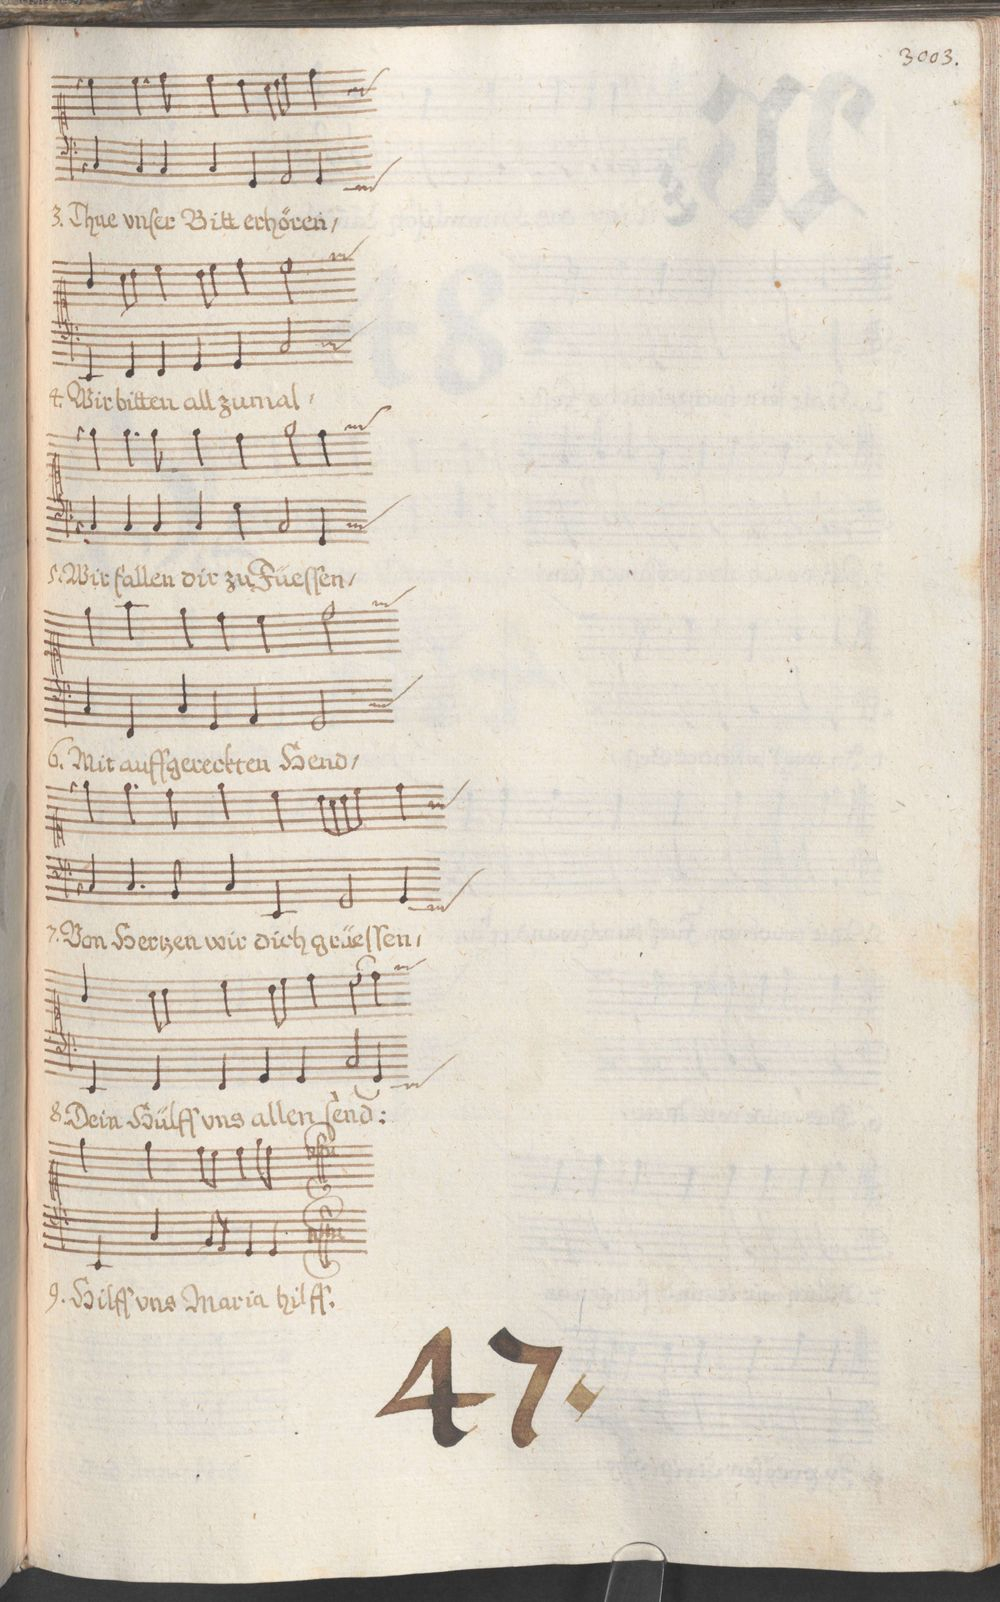 3003.
3. Thue vnser Bitt erhören,
4. Wir bitten all zumal,
5. Wir fallen dir zu Füessen,
6. Mit auffgereckten Hend,
7. Von Hertzen wir dich grüessen,
8. Dein Hülff vns allen send:
9. Hilff vns Maria hilff.
47.